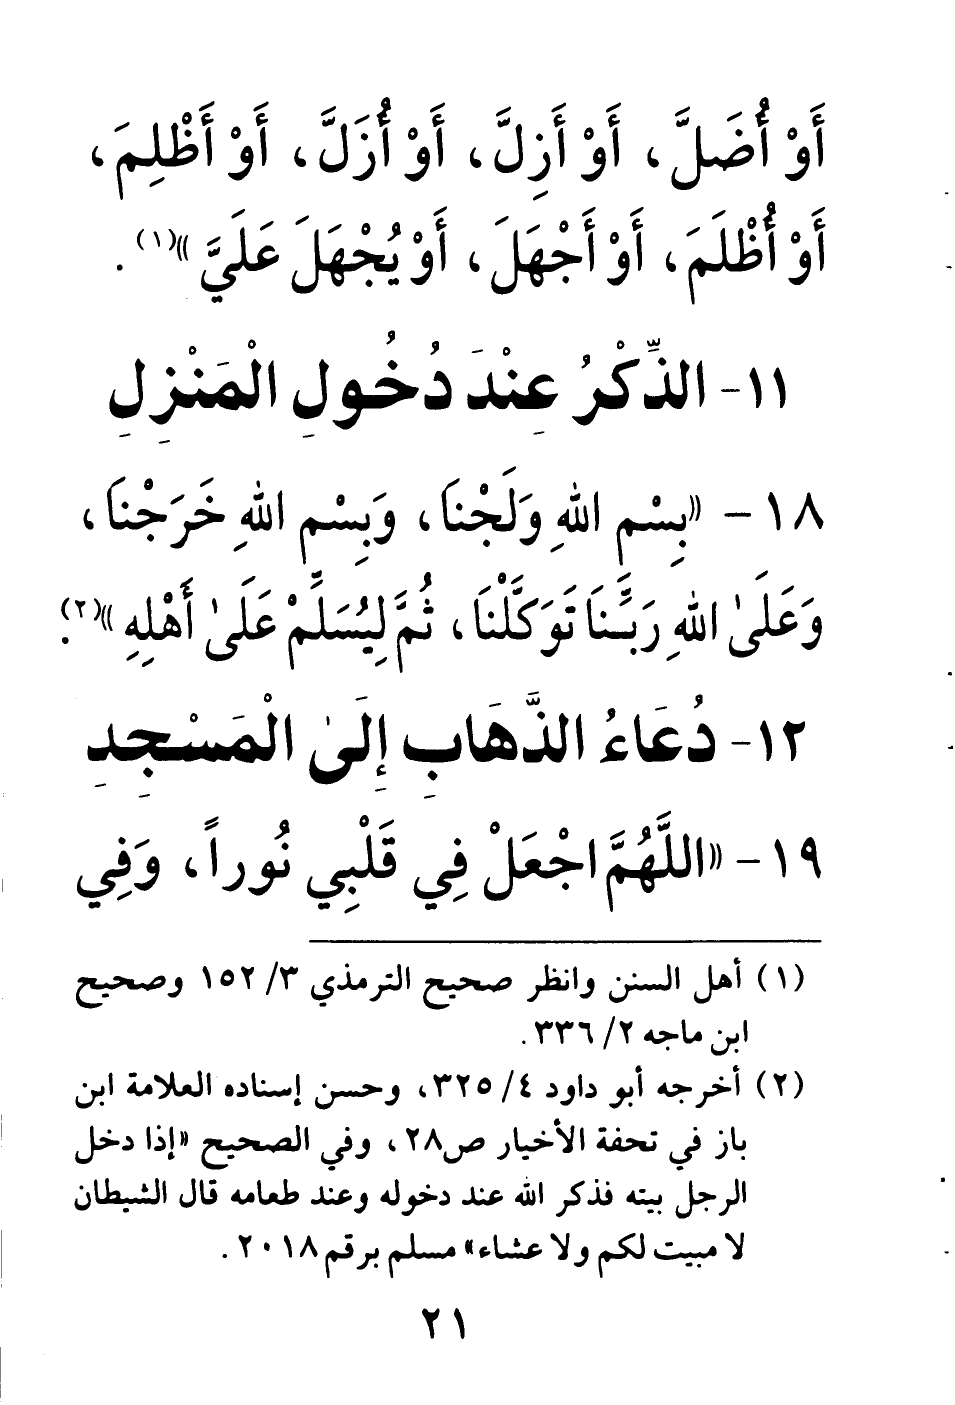 أَوْ أُضَلَّ، أَوْ أَزِلَّ، أَوْ أُزَلَّ، أَوْ أَظْلِمَ،
أَوْ أُظْلَمَ، أَوْ أَجْهَلَ، أَوْ يُجْهَلَ عَلَيَّ»(١).
١١- الذِّكْرُ عِنْدَ دُخُولِ الْمَنْزِلِ
١٨ - «بِسْمِ اللهِ وَلَجْنَا، وَبِسْمِ اللهِ خَرَجْنَا،
وَعَلَىٰ اللهِ رَبِّنَا تَوَكَّلْنَا، ثُمَّ لِيُسَلِّمْ عَلَىٰ أَهْلِهِ»(٢).
١٢- دُعَاءُ الذَّهَابِ إِلَىٰ الْمَسْجِدِ
١٩- «اللَّهُمَّ اجْعَلْ فِي قَلْبِي نُوراً، وَفِي
(١) أهل السنن وانظر صحيح الترمذي ٣/ ١٥٢ وصحيح
ابن ماجه ٢/ ٣٣٦.
(٢) أخرجه أبو داود ٤/ ٣٢٥، وحسن إسناده العلامة ابن
باز في تحفة الأخيار ص٢٨، وفي الصحيح «إذا دخل
الرجل بيته فذكر الله عند دخوله وعند طعامه قال الشيطان
لا مبيت لكم ولا عشاء» مسلم برقم ٢٠١٨.
٢١